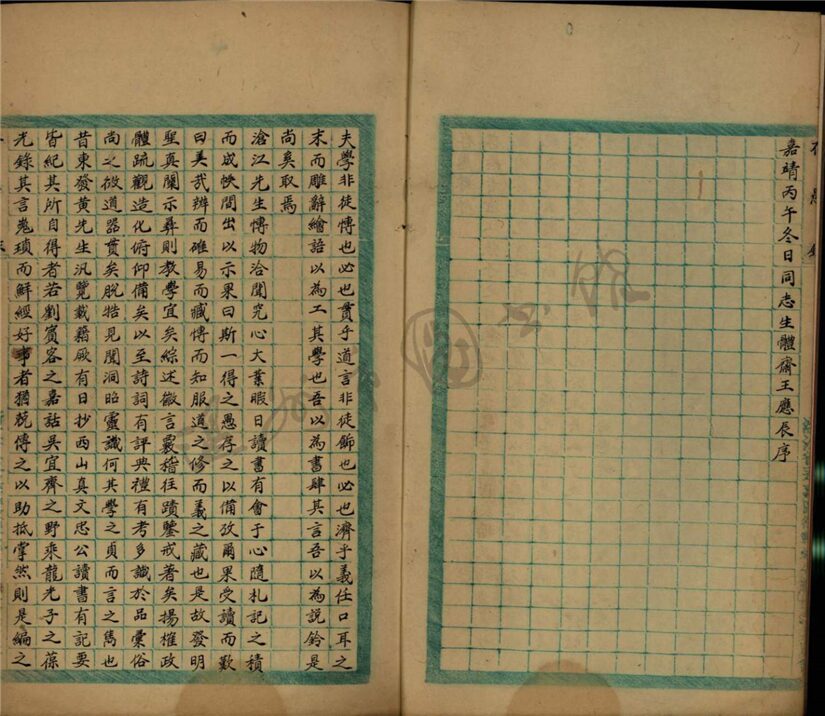 嘉靖丙午冬日同志生體齋王應辰序
夫學非徒博也必也貫乎道言非徒飾也必也濟乎義任口耳之
末而雕辭繪語以為工其學也吾以為書肆其言吾以為説鈴是
尚奚取焉
滄江先生博物洽聞究心大業暇日讀書有會于心隨札記之積
而成帙間出以示果曰斯一得之愚存之以備攷爾果受讀而歎
曰美哉辨而確易而臧博而知服道之修而義之藏也是故發明
聖真闡示彞則教學宜矣綜述微言覈稽往蹟鑒戒著矣揚榷政
體疏觀造化俯仰備矣以至詩詞有評典禮有考多識於品彙俗
尚之微道器貫矣脫牿見聞洞昭靈識何其學之貞而言之雋也
昔東發黃先生汎覽載籍厥有日抄西山真文忠公讀書有記要
皆紀其所自得者若劉賓客之嘉話吳宜齋之野乘龍光子之葆
光錄其言嵬瑣而鮮經好事者猶兢傳之以助抵掌然則是編之